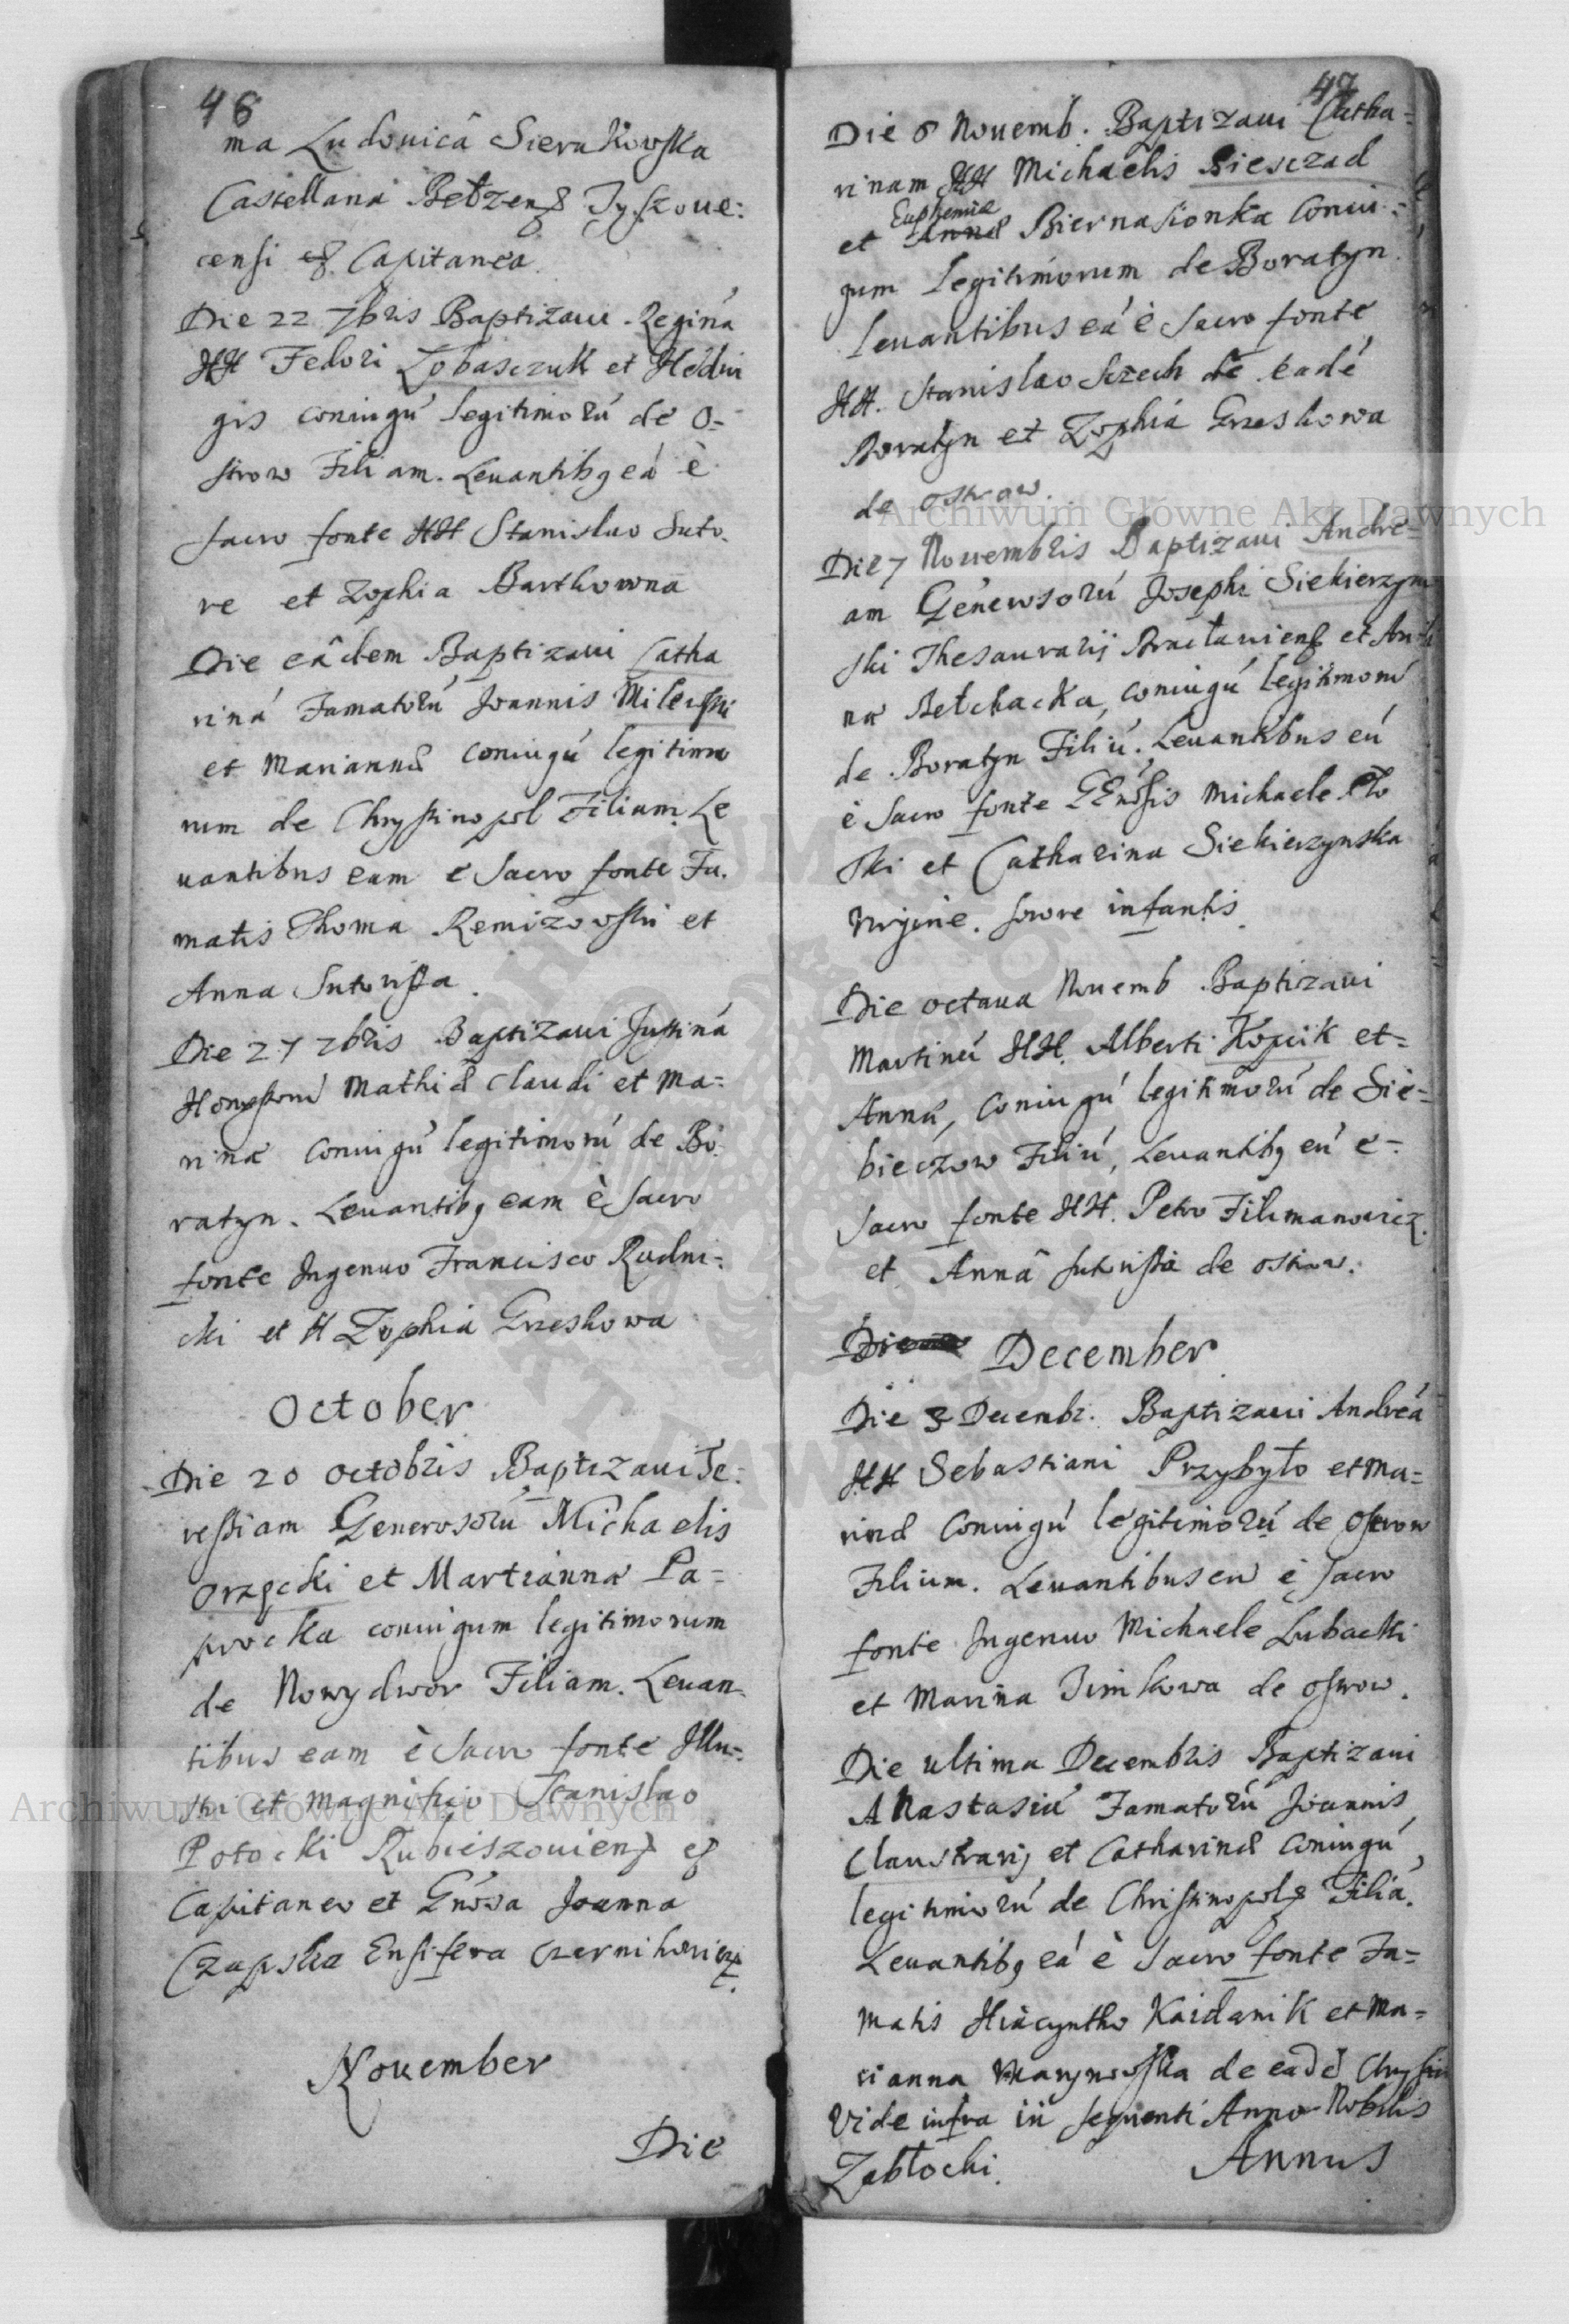 46
ma Ludovicâ Sierakowska
Castellana Bełzens Tyszove:
censi &c Capitanea.
Die 22 7bris Baptizavi Reginá
HH Fedori Łobasczuk et Hedvi
gis coniugú legitimorú de O=
strow Filiam. Levantibq eá è
sacro fonte HH Stanislao Suto-
re et Zophia Bartkowna
Die eâdem Baptizavi Catha
riná Famatorú Joannis Milewski
et Mariannæ coniugú legitimo
rum de Chrystinopol Filiam. Le
vantibus eam e sacro fonte Fa.
matis Thoma Remizowski et
Anna Sutorissa.
Die 27 7bris Baptizavi Justiná
Honestorú Mathiæ Claudi et Ma=
rinæ coniugú legitimorú de Bo
ratyn. Levantibq eam è sacro
fonte Ingenuo Francisco Rudni:
cki et H Zophia Grzeskowa
October
Die 20 octobris Baptizavi Te:
ressiam Generosorú Michaelis
Orzęcki et Martianna Pa=
procka coniugum legitimorum
de Nowydwor Filiam. Levan
tibus eam è sacro fonte Illu=
stri et Magnifico Stanislao
Potocki Rubieszoviens &c
Capitaneo et Gnosa Joanna
Czapska Ensifera Czernihoviens.
November
Die
47
Die 6 Novemb. Baptizavi Catha=
rinam HH Michaelis Biesczad
Euphemiæ
et Annæ Biernasionka Coniu:
gum legitimorum de Boratyn.
Levantibus eá è sacro fonte
HH. Stanislao Szech de eadé
Boratyn et Zophiá Grzeskowa
de ostrow.
Die 7 Novembris Baptizavi Andre=
am Generosorú Josephi Siekierzyn
ski Thesaurarij Bracłaviens et An
na Bełchacka, coniugú legitimorú
de Boratyn Filiú. Levantibus eú
è sacro fonte GEnosis Michaele
ski et Catharina Siekierzynska
virgine. sorore infantis.
Die octava Novemb Baptizavi
Martinú HH. Alberti Kopcik et=
Anná, coniugú legitimorú de Sie=
bieczow Filiú, Levantibq eú e=
sacro fonte HH. Petro Filimanowicz.
et Annâ sutorissa de ostrow.
Die
December
Die 3 Decembr. Baptizavi Andreá
HH Sebastiani Przybyło et Ma=
rinæ Coniugú legitimorú de Ostrow
Filium. Levantibus eú è sacro
fonte Ingenuo Michaele Lubacki
et Marina Dimkowa de ostrow.
Die ultima Decembris Baptizavi
Anastasiá Famatorú Joannis
Claustrarij et Catharinæ Coniugú
legitimorú de Christinopols Filiá.
Levantibq eá è sacro fonte Fa=
matis Hiacyntho Kaidanik et Ma=
rianna Marynowska de eadé Chrystin
Vide infra in sequenti Anno Nobilis
Zabłocki.
Annus
Archiwum Główne Akt Dawnych
Archiwum Główne Akt Dawnych